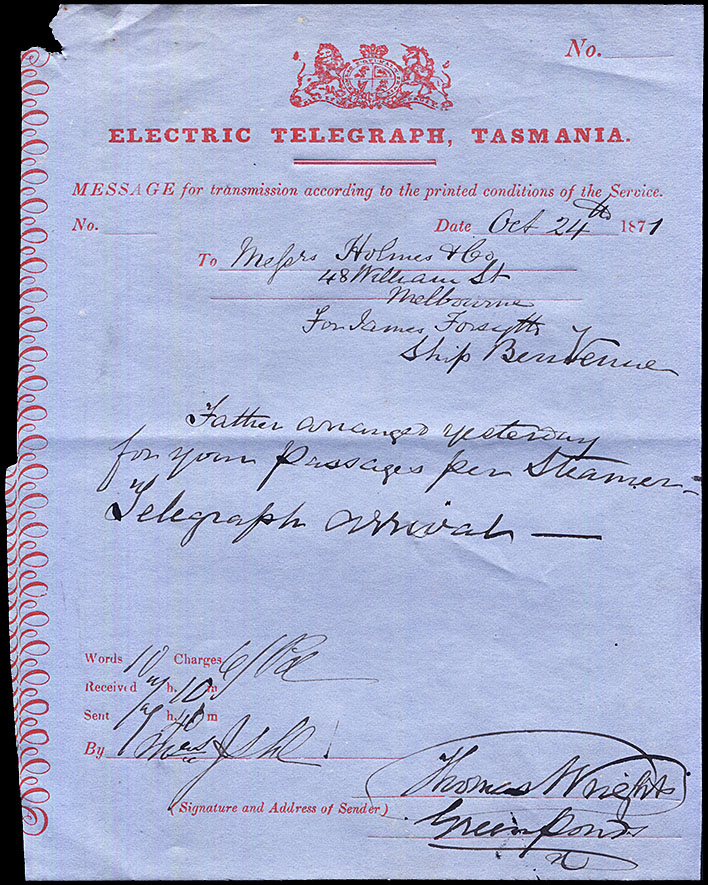 No.
ELECTRIC TELEGRAPH, TASMANIA.
MESSAGE for transmission according to the printed conditions of the Service.
No. Date Oct 24th 1871
To Messrs Holmes & Co
48 William St
Melbourne
For James Forsyth
Ship Ben Venue
Father arranged yesterday
for your passages per Steamer -
Telegraph arrival —
Words 10 Charges 6/ Pd
Received h. 10 m
Sent h. m
By
(Signature and Address of Sender)
Thomas Wright
Green Ponds